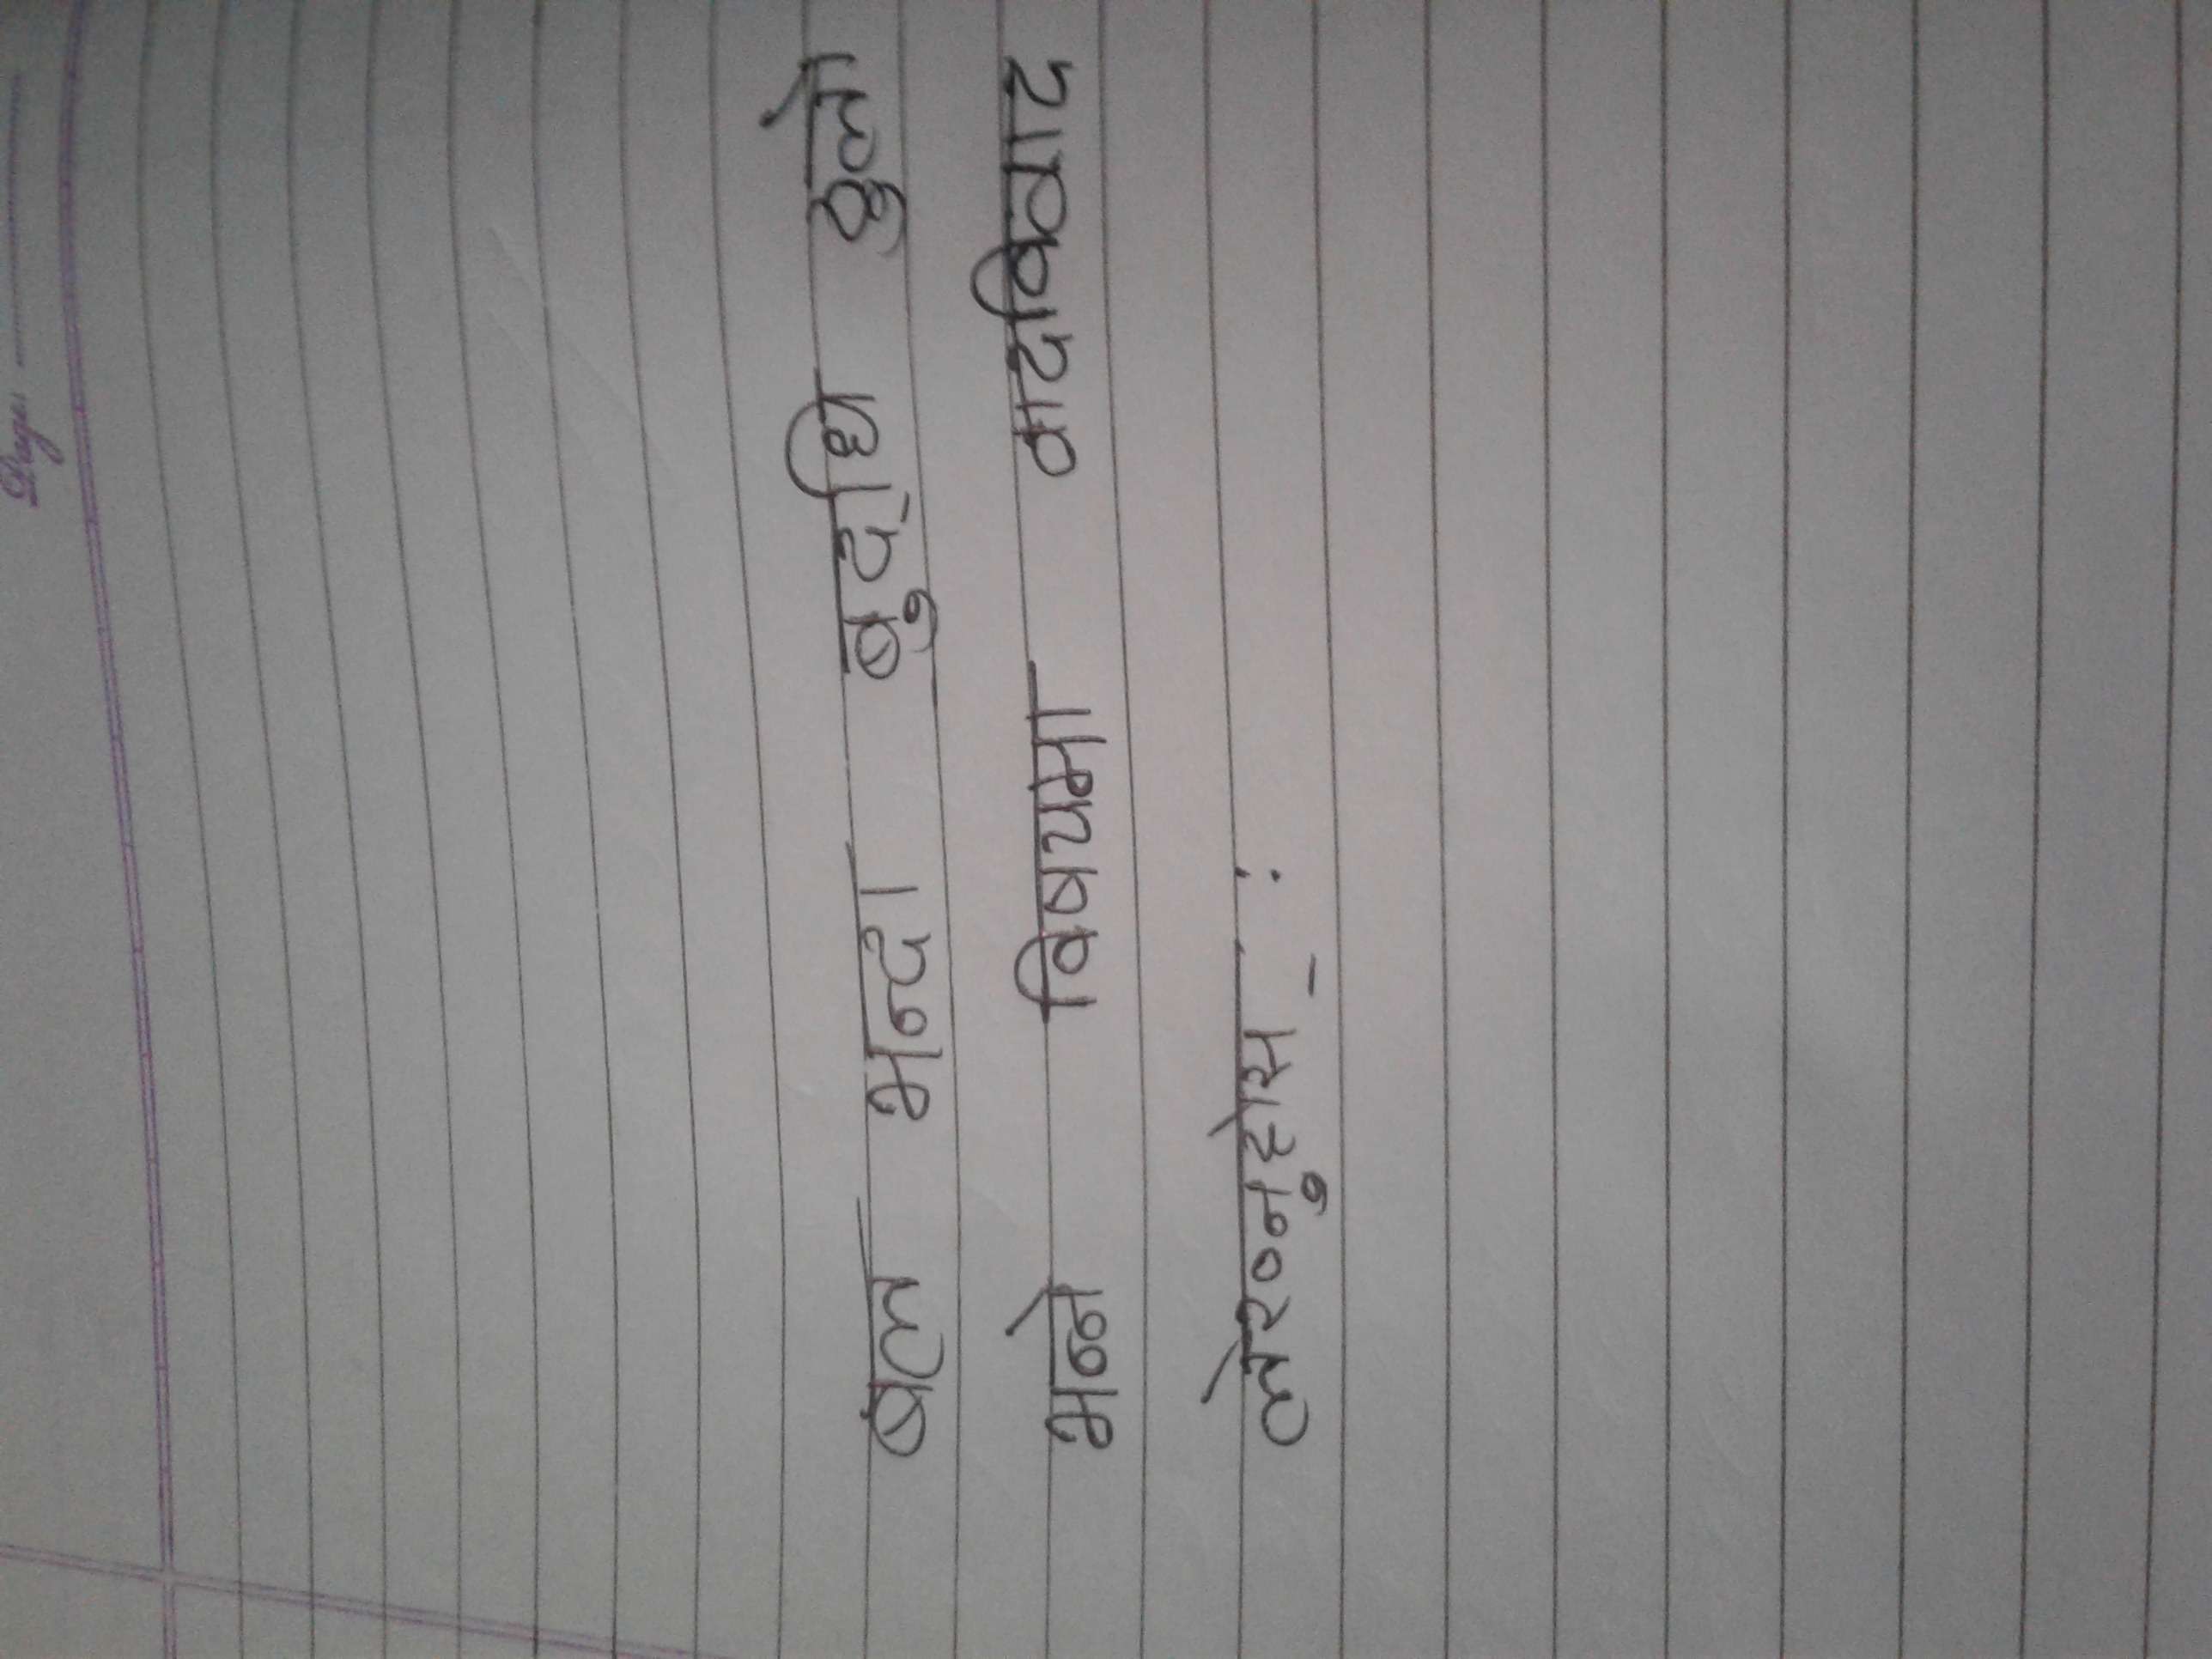 बल भन्दा बुद्धि ठूलो
भन्ने विषयमा वादविवाद
लेख्नुहोस् :
Page: